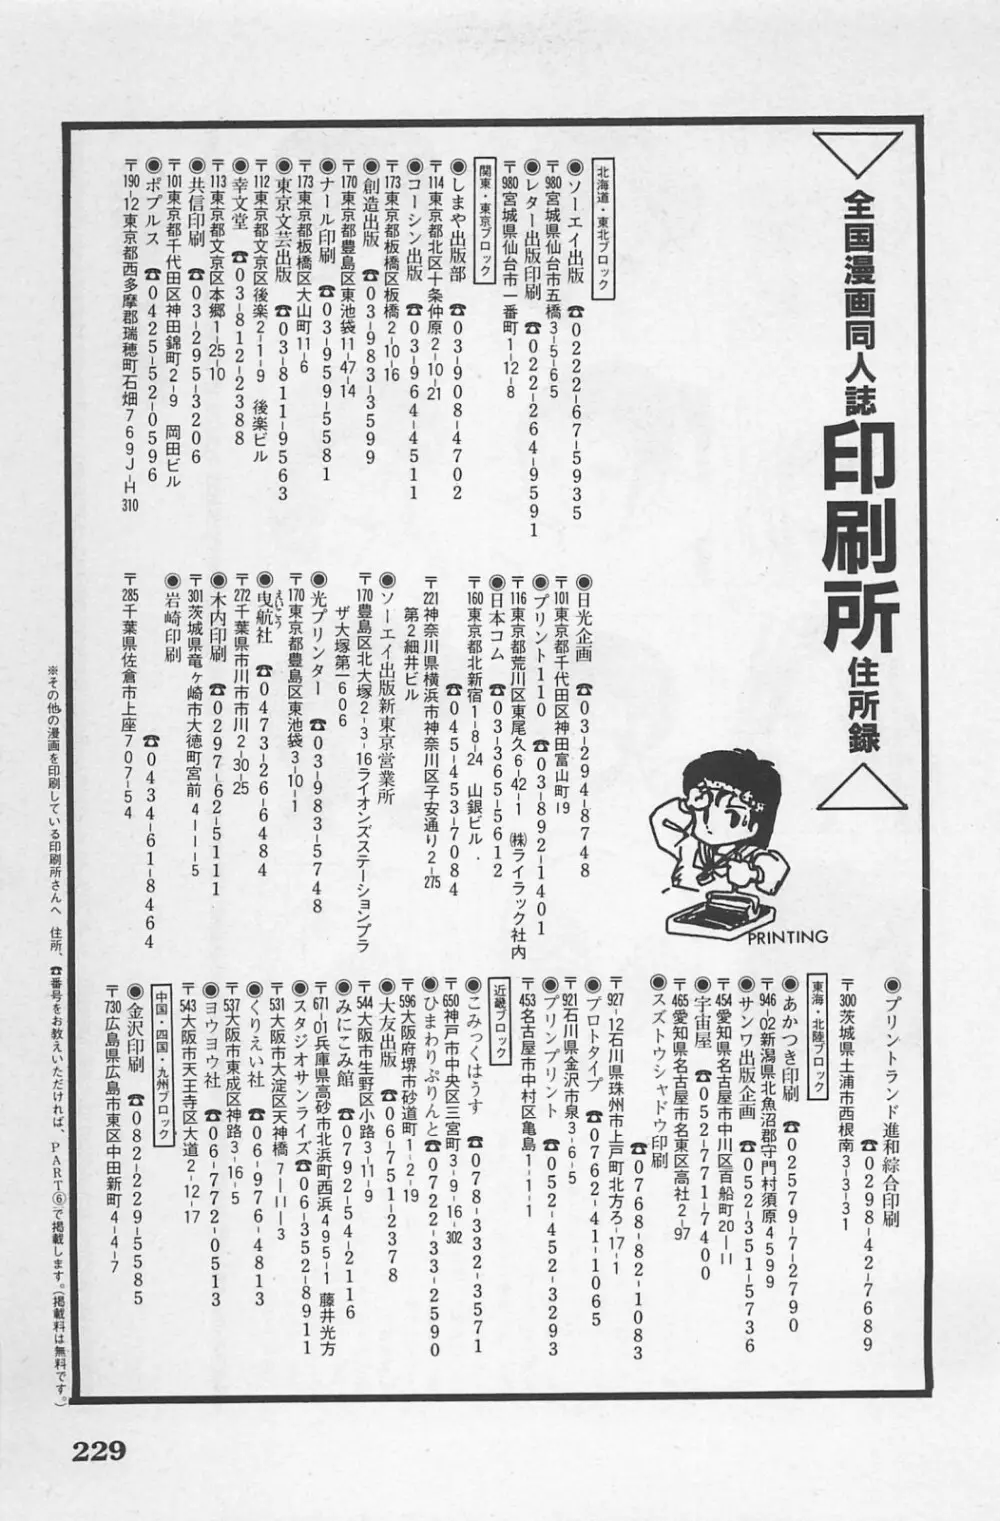 全国漫画同人誌印刷所住所録
PRINTING
北海道・東北ブロック
◉ソーエイ出版 ☎0222-67-5935
〒980宮城県仙台市五橋3-5-65
◉レター出版印刷 ☎022-264-9591
〒980宮城県仙台市一番町1-12-8
関東・東京ブロック
◉しまや出版部 ☎03-908-4702
〒114東京都北区十条仲原2-10-21
◉コーシン出版 ☎03-964-4511
〒173東京都板橋区板橋2-10-16
◉創造出版 ☎03-983-3599
〒170東京都豊島区東池袋11-47-14
◉ナール印刷 ☎03-959-5581
〒173東京都板橋区大山町11-6
◉東京文芸出版 ☎03-811-9563
〒112東京都文京区後楽2-1-9 後楽ビル
◉幸文堂 ☎03-812-2388
〒113東京都文京区本郷1-25-10
◉共信印刷 ☎03-295-3206
〒101東京都千代田区神田錦町2-9 岡田ビル
◉ポプルス ☎0425-52-0596
〒190-12東京都西多摩郡瑞穂町石畑769J-H310
◉日光企画 ☎03-294-8748
〒101東京都千代田区神田富山町19
◉プリント110 ☎03-892-1401
〒116東京都荒川区東尾久6-42-1 ㈱ライラック社内
◉日本コム ☎03-365-5612
〒160東京都北新宿1-8-24 山銀ビル
☎045-453-7084
〒221神奈川県横浜市神奈川区子安通り2-275
第2細井ビル
◉ソーエイ出版新東京営業所
〒170豊島区北大塚2-3-16ライオンズステーションプラ
ザ大塚第一606
◉光プリンター ☎03-983-5748
〒170東京都豊島区東池袋3-10-1
えいこう
◉曳航社 ☎0473-26-6484
〒272千葉県市川市市川2-30-25
◉木内印刷 ☎0297-62-5111
〒301茨城県竜ヶ崎市大徳町宮前4111-5
◉岩崎印刷
☎0434-61-8464
〒285千葉県佐倉市上座707-54
◉プリントランド進和綜合印刷
☎0298-42-7689
〒300茨城県土浦市西根南3-3-31
東海・北陸ブロック
◉あかつき印刷 ☎02579-7-2790
〒946-02新潟県北魚沼郡守門村須原4599
◉サンワ出版企画 ☎052-351-5736
〒454愛知県名古屋市中川区百船町20-11
◉宇宙屋 ☎052-771-7400
〒465愛知県名古屋市名東区高社2-97
◉スズトウシャドウ印刷
☎0768-82-1083
〒927-12石川県珠州市上戸町北方ろ-17-1
◉プロトタイプ ☎0762-41-1065
〒921石川県金沢市泉3-6-5
◉プリンプリント ☎052-452-3293
〒453名古屋市中村区亀島1-1-1
近畿ブロック
◉こみっくはうす ☎078-332-3571
〒650神戸市中央区三宮町3-9-16-302
◉ひまわりぷりんと☎0722-33-2590
〒596大阪府堺市砂道町1-2-19
◉大友出版 ☎06-751-2378
〒544大阪市生野区小路3-11-9
◉みにこみ館 ☎0792-54-2116
〒671-01兵庫県高砂市北浜町西浜495-1 藤井光方
◉スタジオサンライズ☎06-352-8911
〒531大阪市大淀区天神橋7-11-3
◉くりえい社 ☎06-976-4813
〒537大阪市東成区神路3-16-5
◉ヨウヨウ社 ☎06-772-0513
〒543大阪市天王寺区大道2-12-17
中国・四国・九州ブロック
◉金沢印刷 ☎082-229-5585
〒730広島県広島市東区中田新町4-4-7
※その他の漫画を印刷している印刷所さんへ 住所、☎番号をお教えいただければ、PART⑥で掲載します。(掲載料は無料です。)
229